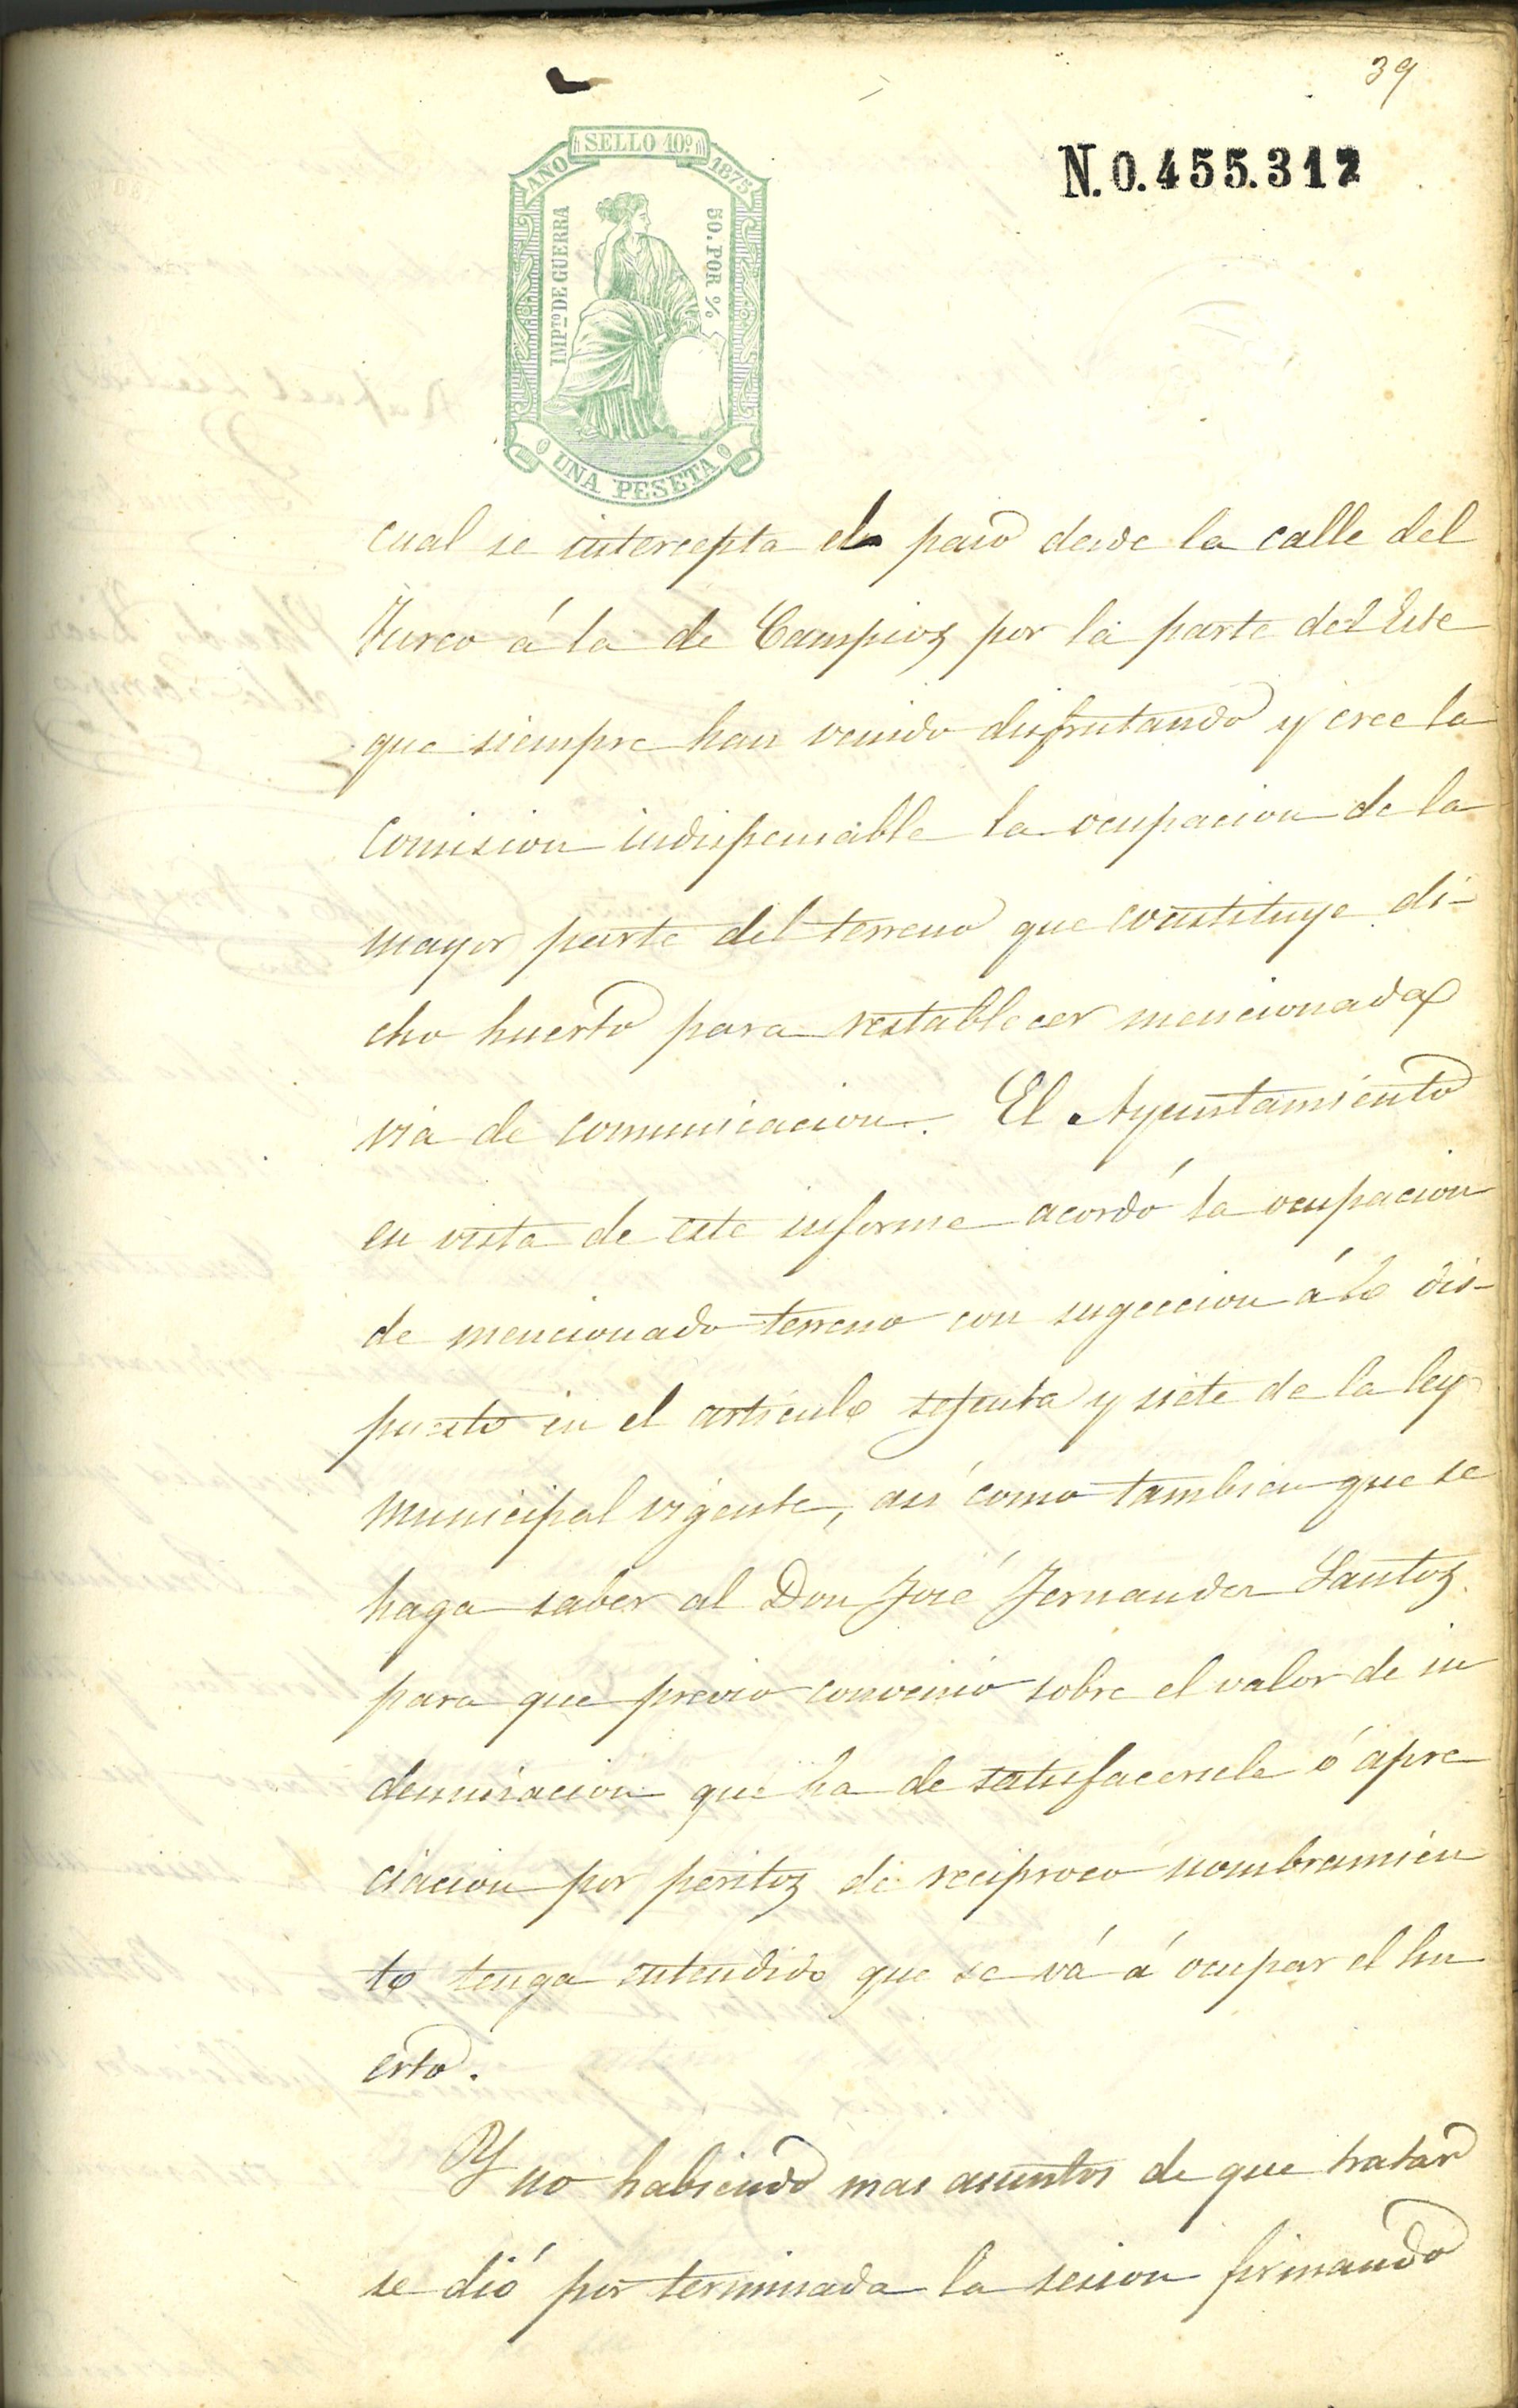 39
N.0.455.312
SELLO 10º
AÑO 1875
IMPTO DE GUERRA
50. POR %
UNA PESETA
cual se intercepta el paso desde la calle del
Turco á la de Campios por la parte del Este
que siempre han venido disfrutando y cree la
Comision indispensable la ocupacion de la
mayor parte del terreno que constituye di-
cho huerto para restablecer mencionada
via de comunicacion. El Ayuntamiento
en vista de este informe acordó la ocupacion
de mencionado terreno con sugeccion á lo dis-
puesto en el articulo setenta y siete de la ley
municipal vigente, asi como tambien que se
haga saber al Don José Fernandez Santos
para que previo convenio sobre el valor de in
demnizacion que ha de satisfacersele ó apre
ciacion por peritos de reciproco nombramien
to tenga entendido que se vá á ocupar el hu
erto.
Y no habiendo mas asuntos de que tratar
se dió por terminada la sesion firmando